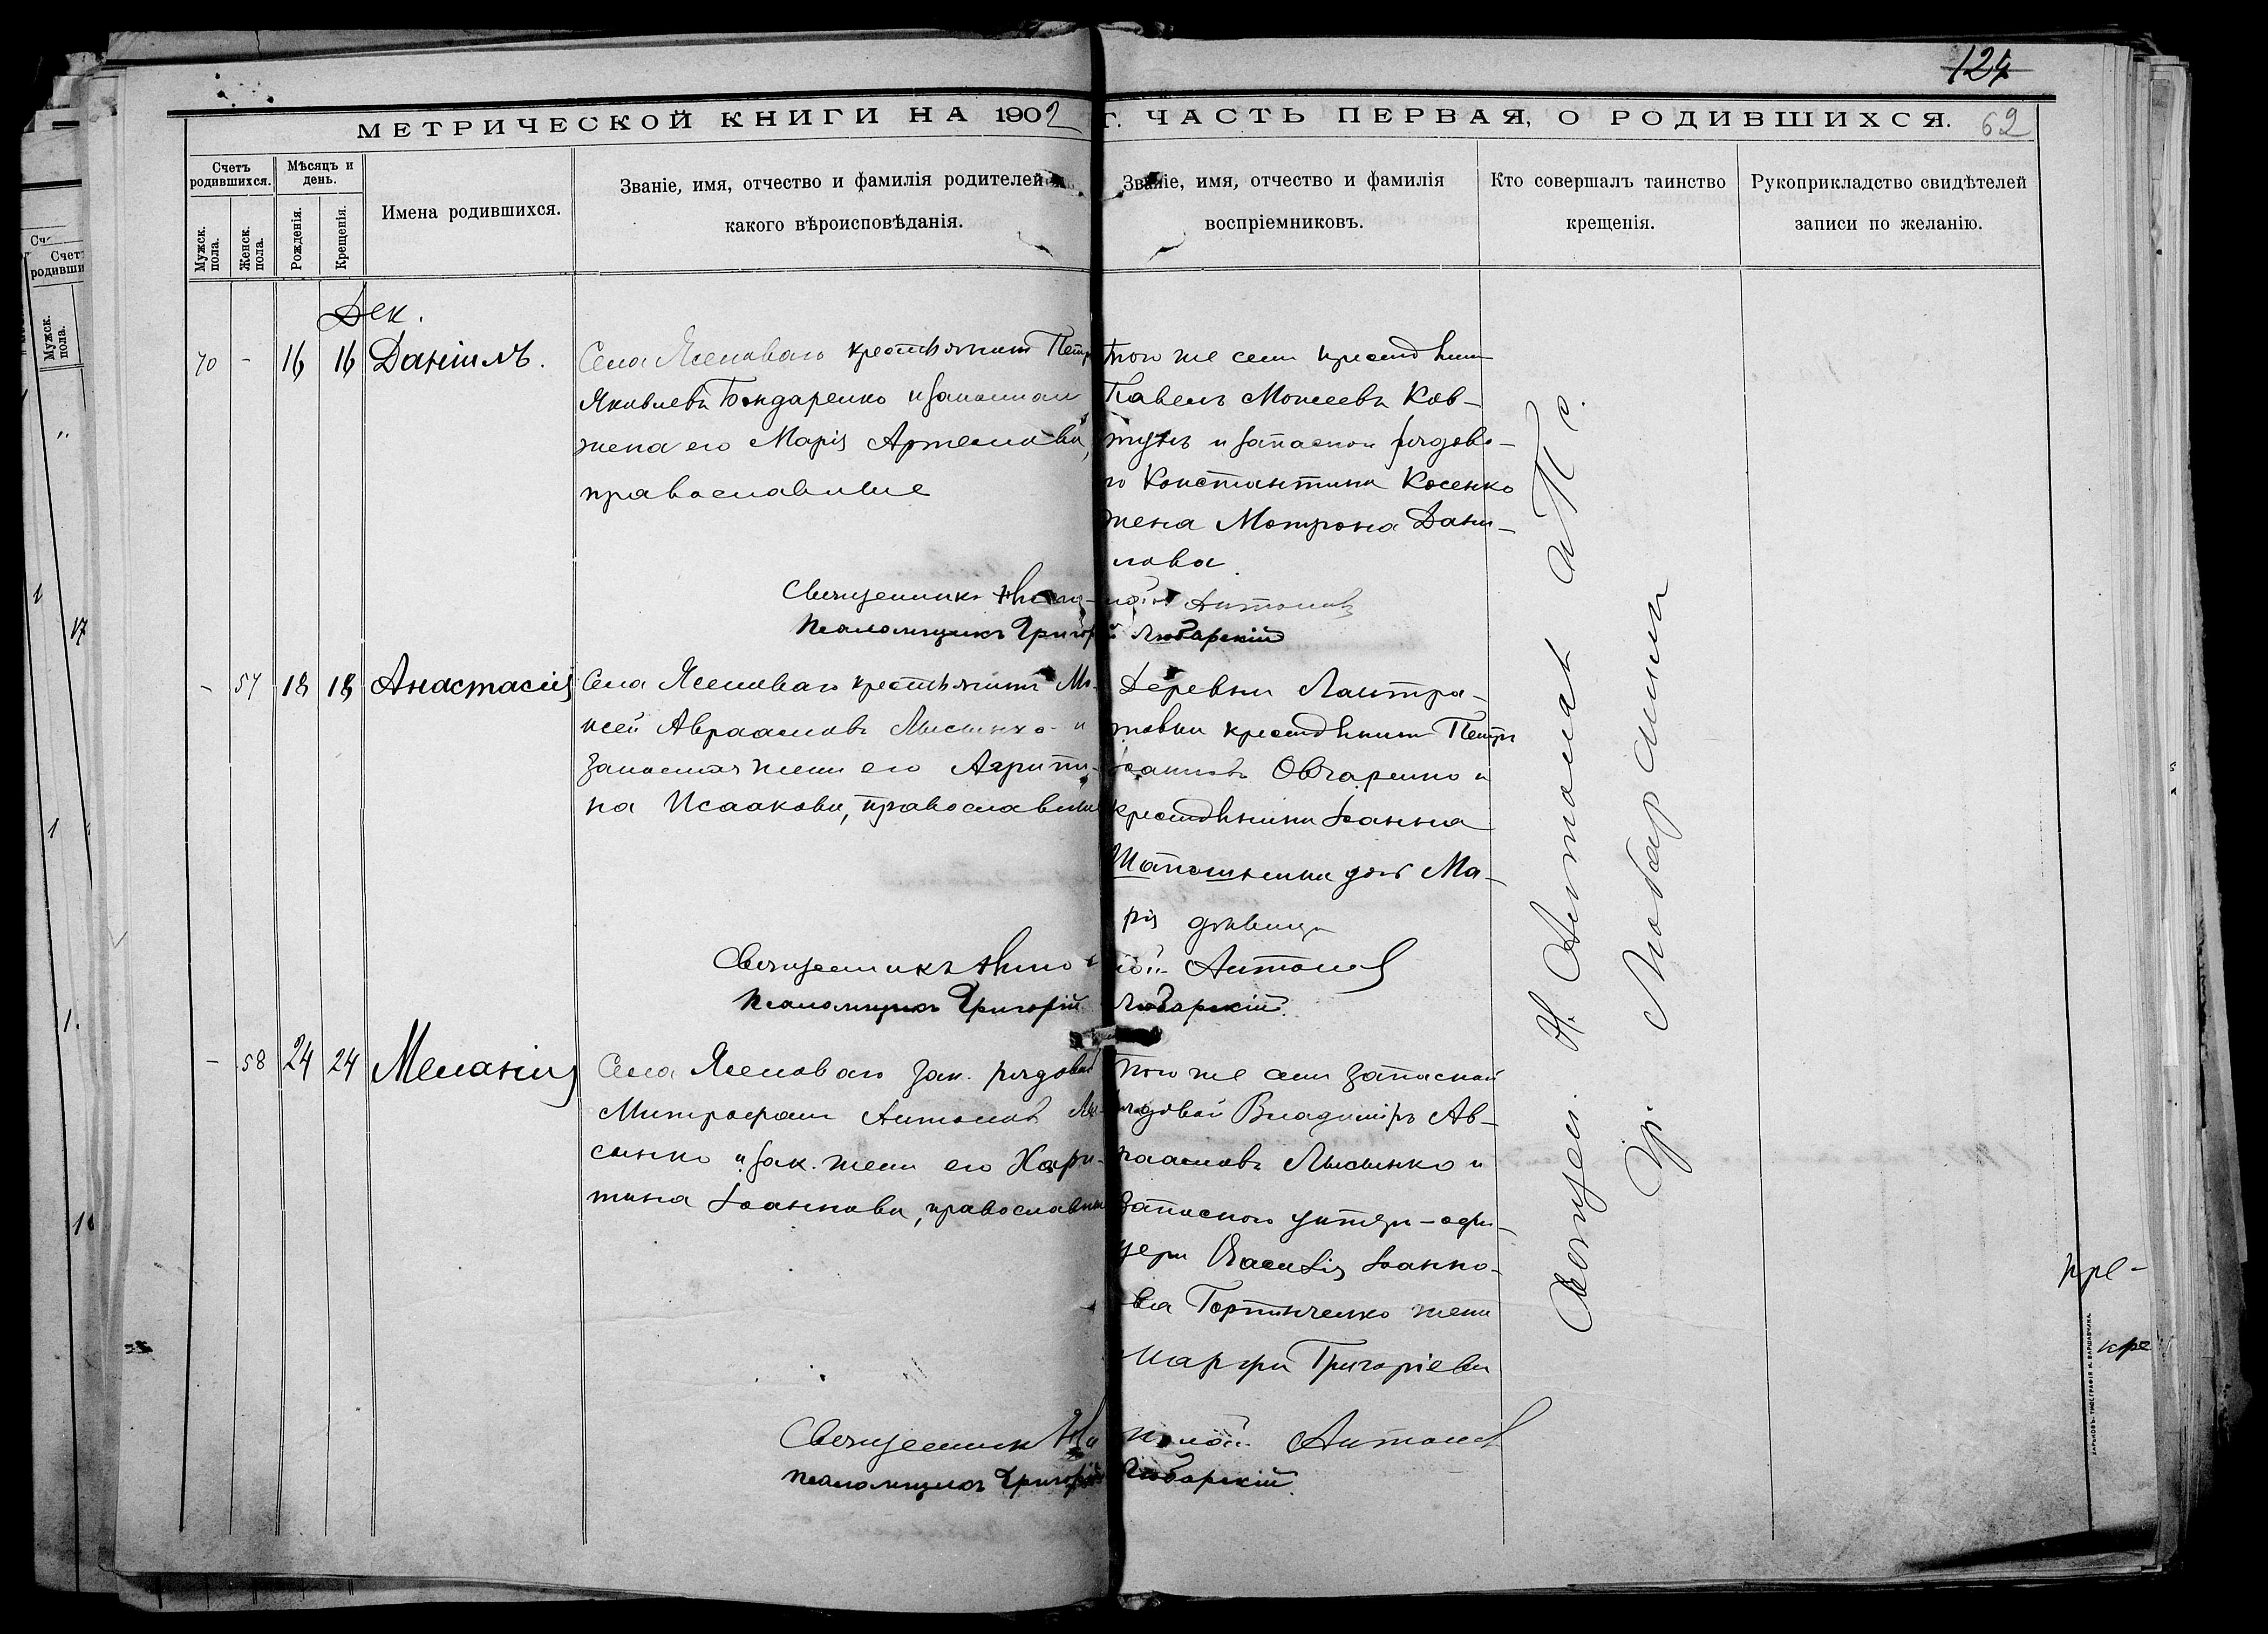 124
МЕТРИЧЕСКОЙ КНИГИ НА 1902 Г. ЧАСТЬ ПЕРВАЯ, О РОДИВШИХСЯ. 62
Счетъ родившихся.
Мужск. пола.
Женск. пола.
Мѣсяцъ и день.
Рожденія.
Крещенія.
Имена родившихся.
Званіе, имя, отчество и фамилія родителей и
какого вѣроисповѣданія.
Званіе, имя, отчество и фамилія
воспріемниковъ.
Кто совершалъ таинство
крещенія.
Рукоприкладство свидѣтелей
записи по желанію.
Дек.
70 - 16 16 Даніилъ.
Села Ясеноваго крестьянинъ Петръ
Яковлевъ Бондаренко и законная
жена его Марія Артемова,
православные
того же села крестьянинъ
Павелъ Моисеевъ Ков-
тунъ и запасного рядово-
го Константина Косенко
жена Мотрона Дани-
лова
Священникъ Антоновъ
Псаломщикъ Григорій Любарскій
- 57 18 18 Анастасія
Села Ясеноваго крестьянинъ Мо-
исей Авраамовъ Лысенко и
законная жена его Агрипи-
на Исаакова, православные
Деревни Лантра-
товки крестьянинъ Петръ
Овчаренко и
крестьянина Іоанна
Шапошника дочь Ма-
рія дѣвица
Священникъ Антоновъ
Псаломщикъ Григорій Любарскій
- 58 24 24 Меланія
Села Ясеноваго зап. рядовой
Митрофанъ Антоновъ Лы-
сенко и зак. жена его Хари-
тина Іоаннова, православные
того же села запасной
рядовой Владиміръ Ав-
раамовъ Лысенко и
запасного унтеръ-офи-
цера Василія Іоанно-
ва жена
Марфа Григоріева
Священникъ Антоновъ
Псаломщикъ Григорій Любарскій
Священ. Н. Антоновъ и Пс.
Гр. Любарскій
кре-
кре